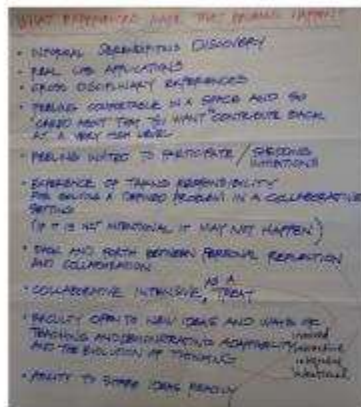 WHAT EXPERIENCES MAKE THAT LEARNING HAPPEN?
• INFORMAL SERENDIPITOUS DISCOVERY
• REAL LIFE APPLICATIONS
• CROSS DISCIPLINARY EXPERIENCES
• FEELING COMFORTABLE IN A SPACE AND SO
"CARED ABOUT" THAT YOU WANT CONTRIBUTE BACK
AT A VERY HIGH LEVEL
• FEELING INVITED TO PARTICIPATE /
INTENTIONS
• EXPERIENCE OF TAKING RESPONSIBILITY
FOR SOLVING A DEFINED PROBLEM IN A COLLABORATIVE
SETTING
(IF IT IS NOT INTENTIONAL IT MAY NOT HAPPEN)
• BACK AND FORTH BETWEEN PERSONAL REFLECTION
AND COLLABORATION
• COLLABORATIVE INTENSIVE, AS A TREAT
• FACULTY OPEN TO NEW IDEAS AND WAYS OF
TEACHING AND DEMONSTRATING ADAPTABILITY
AND THE EVOLUTION OF THINKING
• ABILITY TO SHARE IDEAS READILY
intensive
intentional